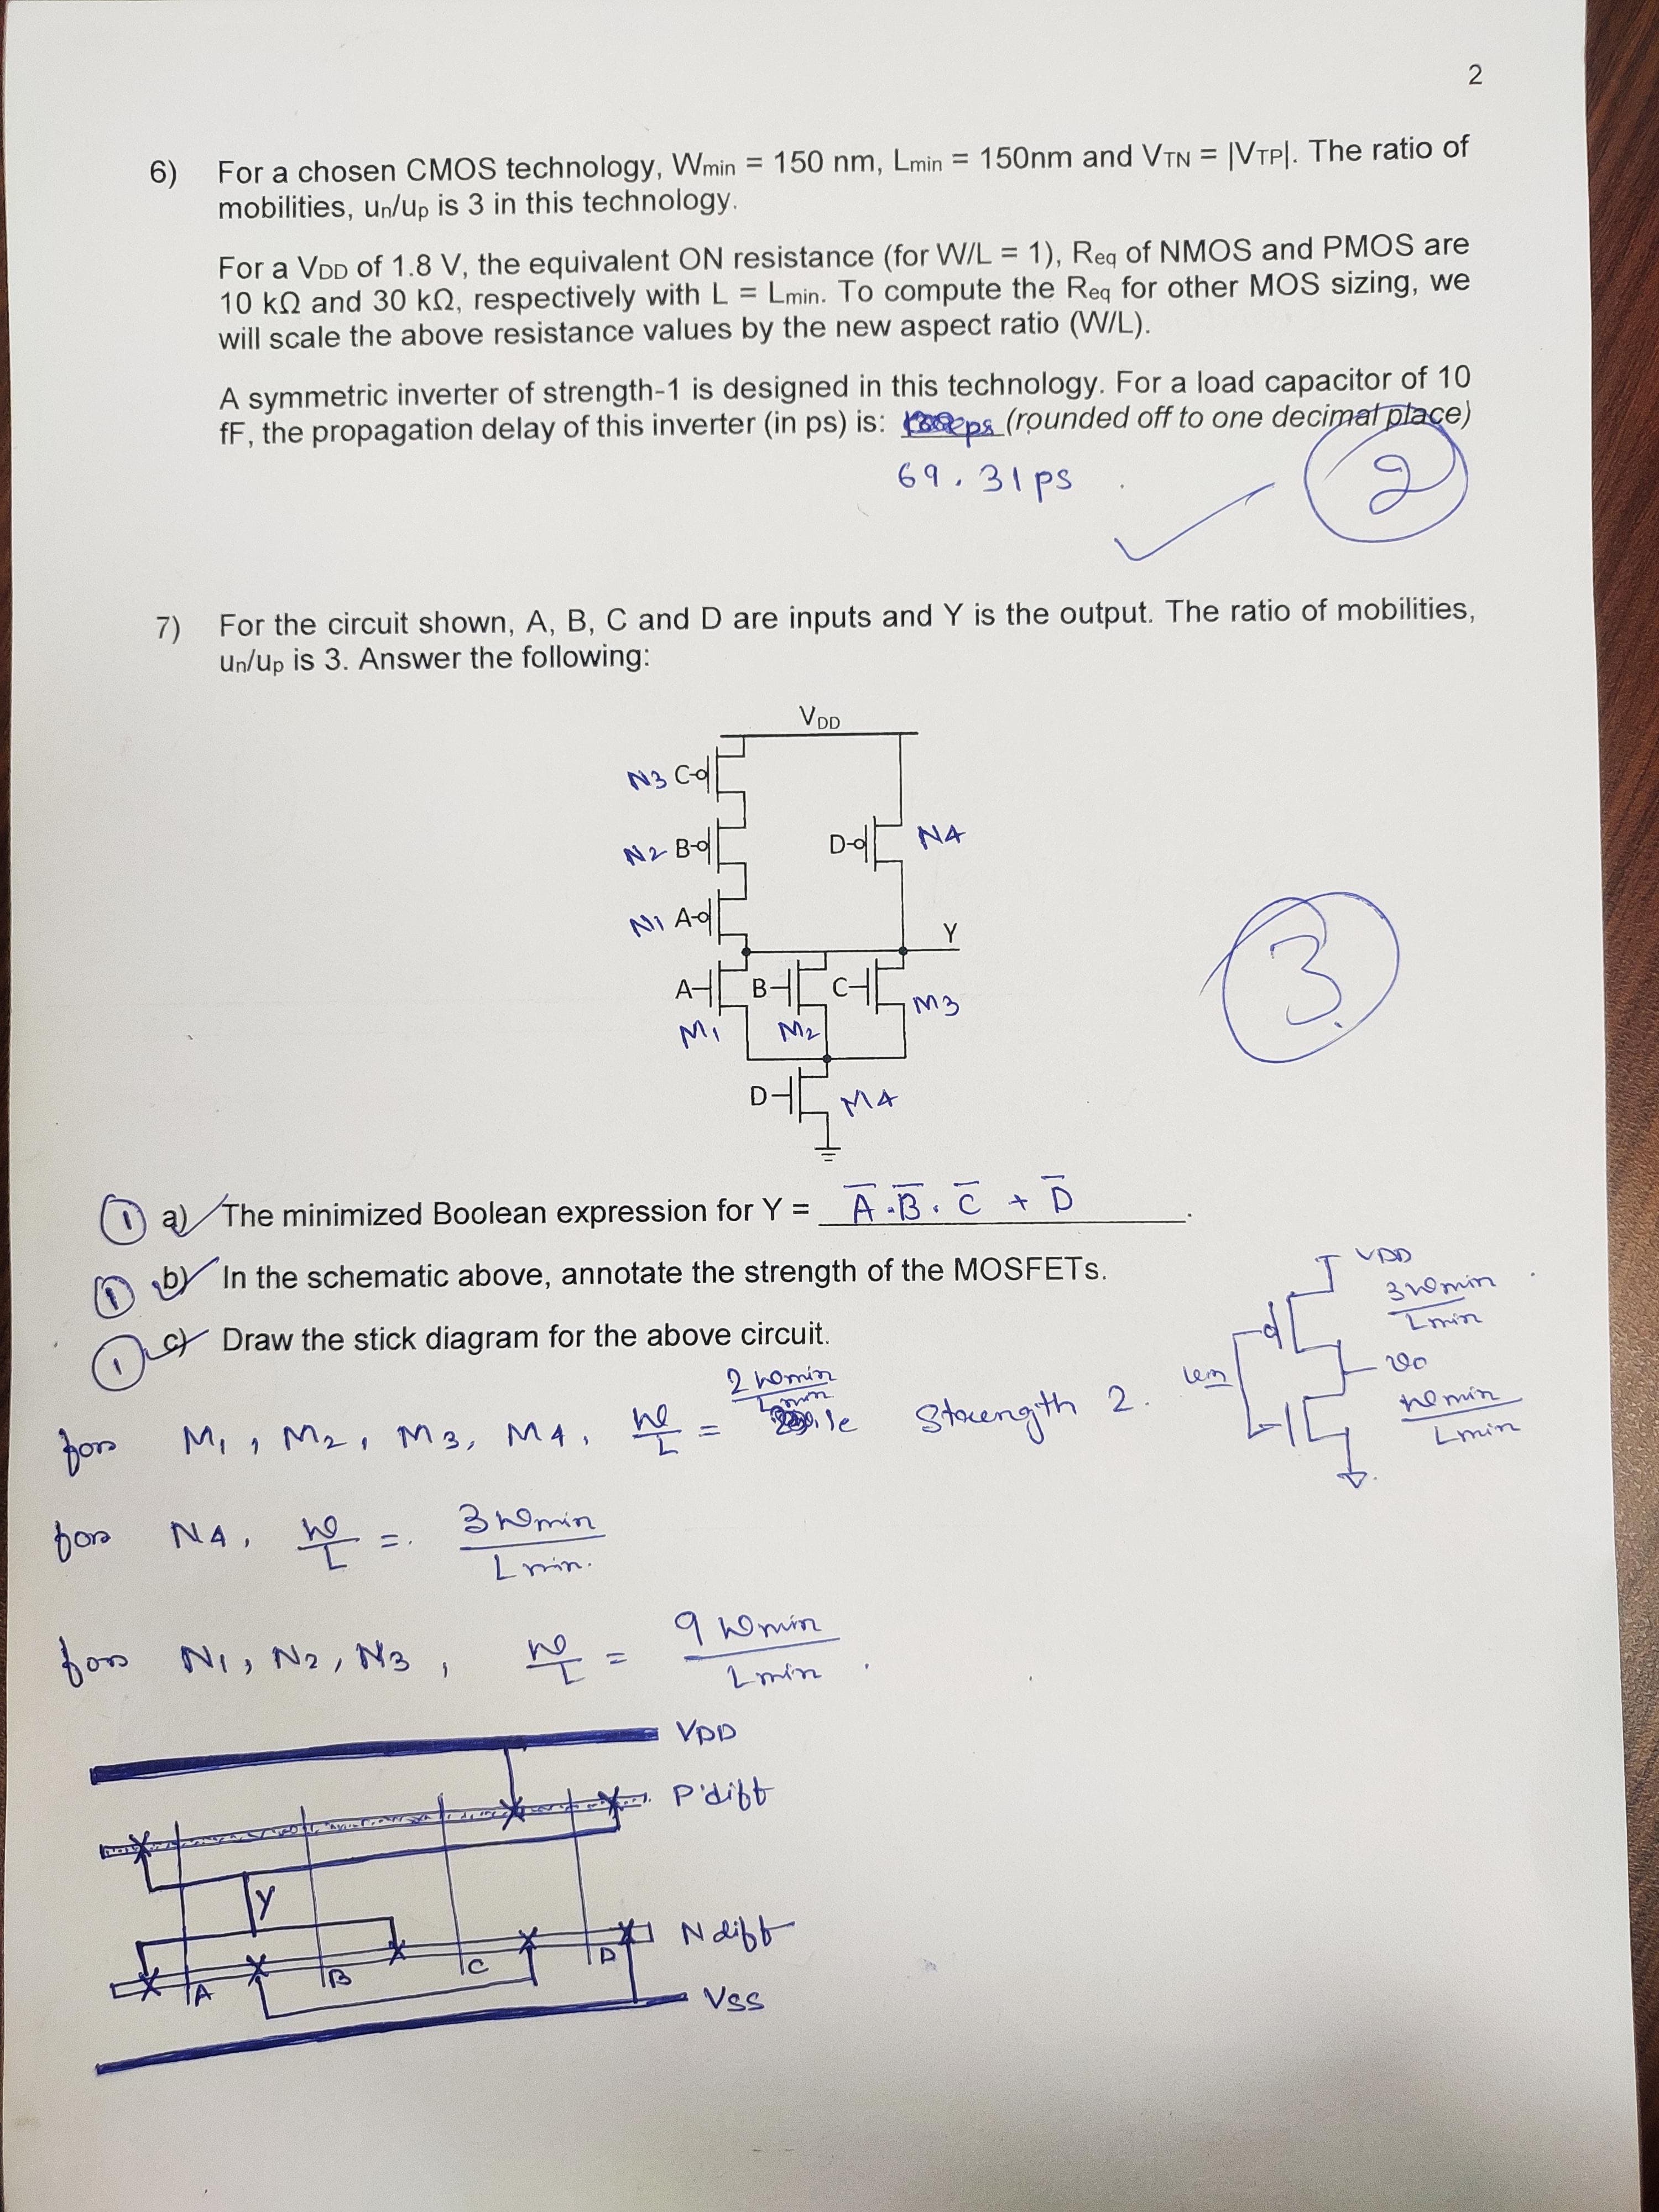 2
6) For a chosen CMOS technology, Wmin = 150 nm, Lmin = 150nm and VTN = |VTP|. The ratio of
mobilities, un/up is 3 in this technology.
For a VDD of 1.8 V, the equivalent ON resistance (for W/L = 1), Req of NMOS and PMOS are
10 kΩ and 30 kΩ, respectively with L = Lmin. To compute the Req for other MOS sizing, we
will scale the above resistance values by the new aspect ratio (W/L).
A symmetric inverter of strength-1 is designed in this technology. For a load capacitor of 10
fF, the propagation delay of this inverter (in ps) is: ps (rounded off to one decimal place)
69.31ps
2
7) For the circuit shown, A, B, C and D are inputs and Y is the output. The ratio of mobilities,
un/up is 3. Answer the following:
VDD
N3 C
N2 B D N4
N1 A
Y
A B C M3
M1 M2
D M4
3
1 a) The minimized Boolean expression for Y = A̅.B̅.C̅ + D̅.
1 b) In the schematic above, annotate the strength of the MOSFETs.
1 c) Draw the stick diagram for the above circuit.
VDD
3Wmin
Lmin
Vo
Wmin
Lmin
for M1, M2, M3, M4, W/L = 2Wmin/Lmin Strength 2.
for N4, W/L = 3Wmin/Lmin.
for N1, N2, N3, W/L = 9Wmin/Lmin.
VDD
P diff
Y
N diff
A B C D
VSS